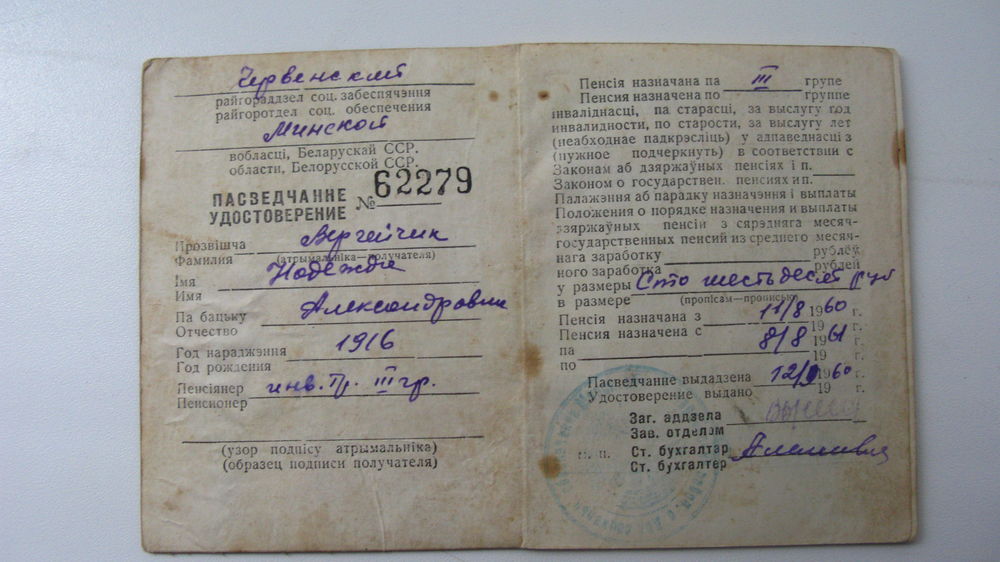 Червенский
райгораддзел соц. забеспячэння
райгоротдел соц. обеспечения
Минской
вобласці, Беларускай ССР.
области, Белорусской ССР.
ПАСВЕДЧАННЕ
УДОСТОВЕРЕНИЕ № 62279
Прозвішча Вергейчик
Фамилия (атрымальніка—получателя)
Імя Надежда
Имя
Па бацьку Александровна
Отчество
Год нараджэння 1916
Год рождения
Пенсіянер инв. Тр. III гр.
Пенсионер
(узор подпісу атрымальніка)
(образец подписи получателя)
Пенсія назначана па III групе
Пенсия назначена по группе
інваліднасці, па старасці, за выслугу год
инвалидности, по старости, за выслугу лет
(неабходнае падкрэсліць) у адпаведнасці з
(нужное подчеркнуть) в соответствии с
Законам аб дзяржаўных пенсіях і п.
Законом о государствен. пенсиях и п.
Палажэння аб парадку назначэння і выплаты
Положения о порядке назначения и выплаты
дзяржаўных пенсій з сярэдняга месяч-
государственных пенсий из среднего месяч-
нага заработку рублёў
ного заработка рублей
у размеры Сто шестьдесят руб
в размере (пропісам—прописью)
Пенсія назначана з 11/8 1960 г.
Пенсия назначена с 19 г.
па 8/8 1961 г.
по 19 г.
Пасведчанне выдадзена 12/ 1960 г.
Удостоверение выдано 19 г.
Заг. аддзела
Зав. отделом
м. п. Ст. бухгалтар
Ст. бухгалтер